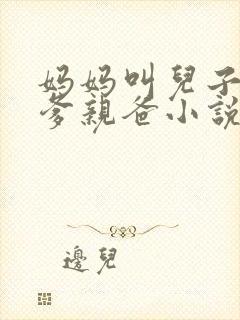 妈妈叫兒子
爹親爸小說
邊兒